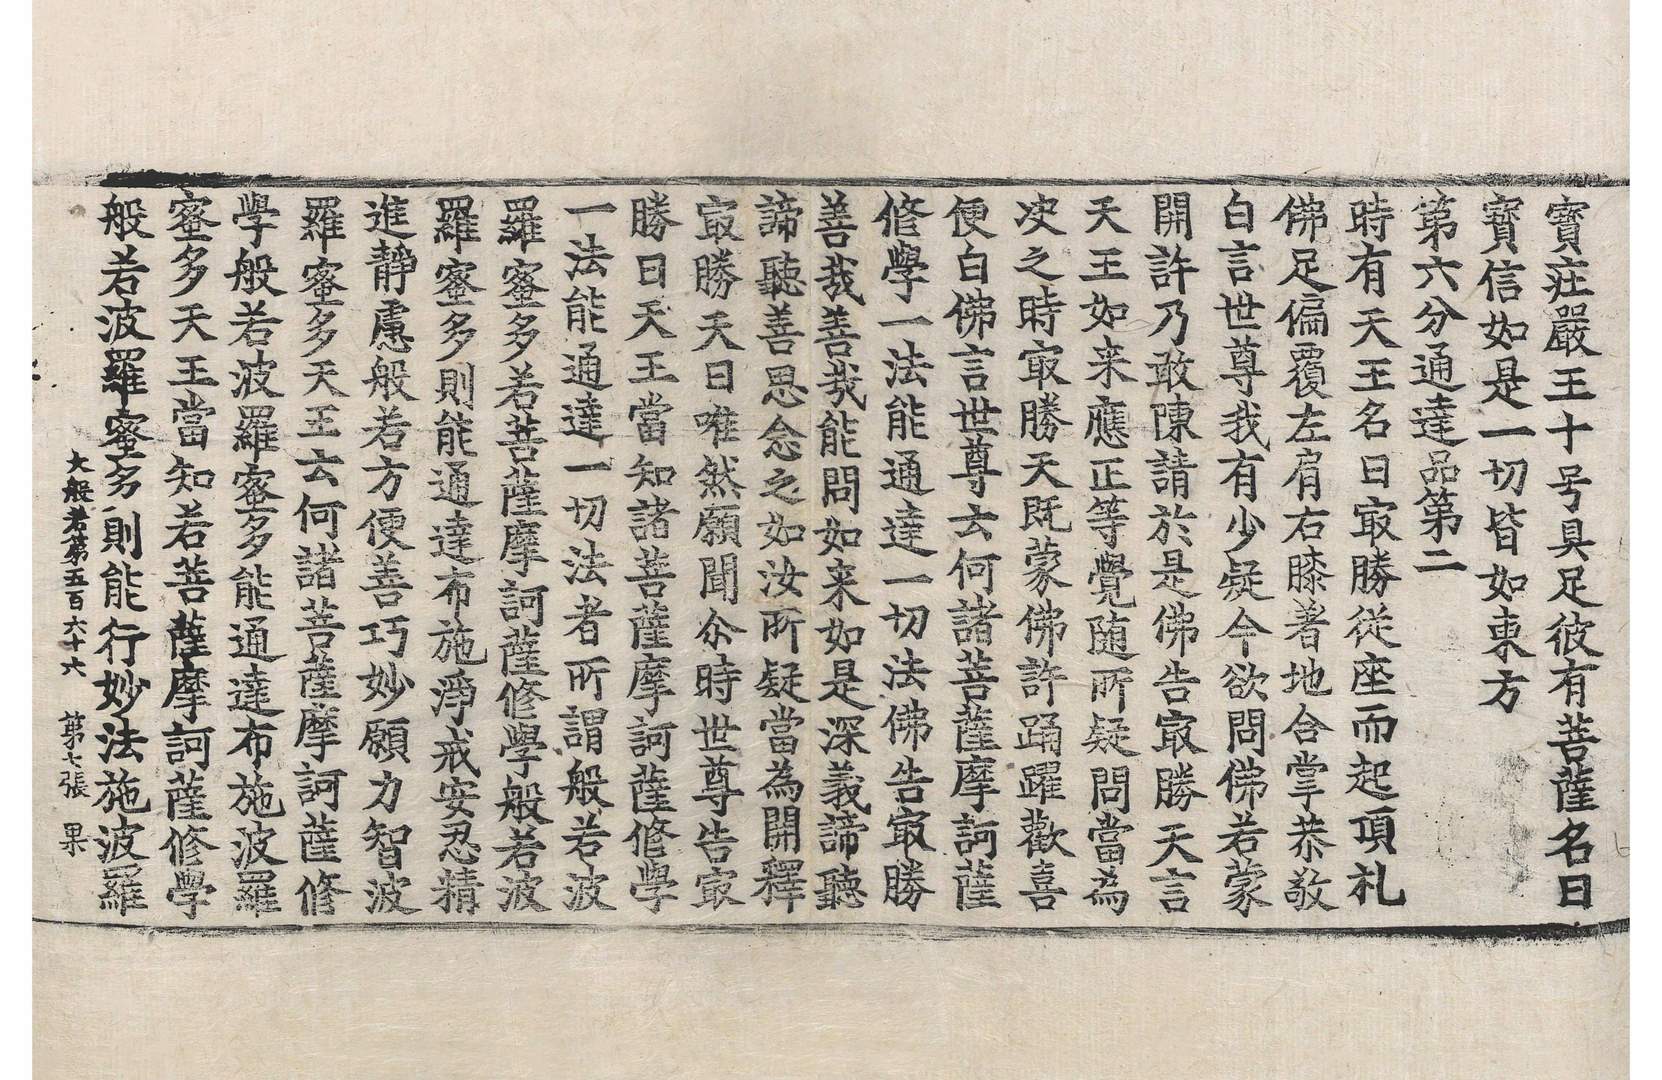 寳莊嚴王十号具足彼有菩薩名曰
寳信如是一切皆如東方
第六分通達品第二
時有天王名曰㝡勝從座而起頂礼
佛足偏覆左肩右膝著地合掌恭敬
白言世尊我有少疑今欲問佛若蒙
開許乃敢陳請於是佛告㝡勝天言
天王如来應正等覺随所疑問當為
决之時㝡勝天既蒙佛許踊躍歡喜
便白佛言世尊云何諸菩薩摩訶薩
修學一法能通達一切法佛告㝡勝
善㢤善㢤能問如来如是深義諦聽
諦聽善思念之如汝所疑當為開釋
㝡勝天曰唯然願聞尒時世尊告㝡
勝曰天王當知諸菩薩摩訶薩修學
一法能通達一切法者所謂般若波
羅蜜多若菩薩摩訶薩修學般若波
羅蜜多則能通達布施淨戒安忍精
進靜慮般若方便善巧妙願力智波
羅蜜多天王云何諸菩薩摩訶薩修
學般若波羅蜜多能通達布施波羅
蜜多天王當知若菩薩摩訶薩修學
般若波羅蜜多則能行妙法施波羅
大般若第五百六十六 第七張 果